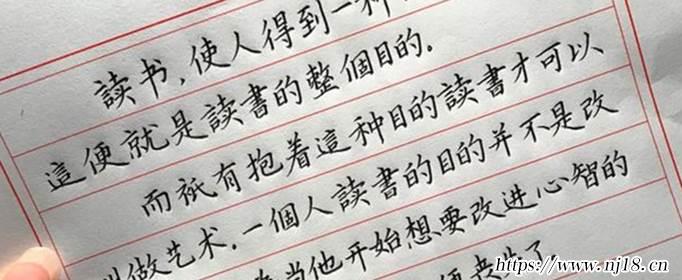 讀书，使人得到一种
這便就是讀書的整個目的。
而祇有抱着這种目的讀書才可以
叫做艺术。一個人讀書的目的并不是改
当他开始想要改进心智的
https://www.nj18.cn